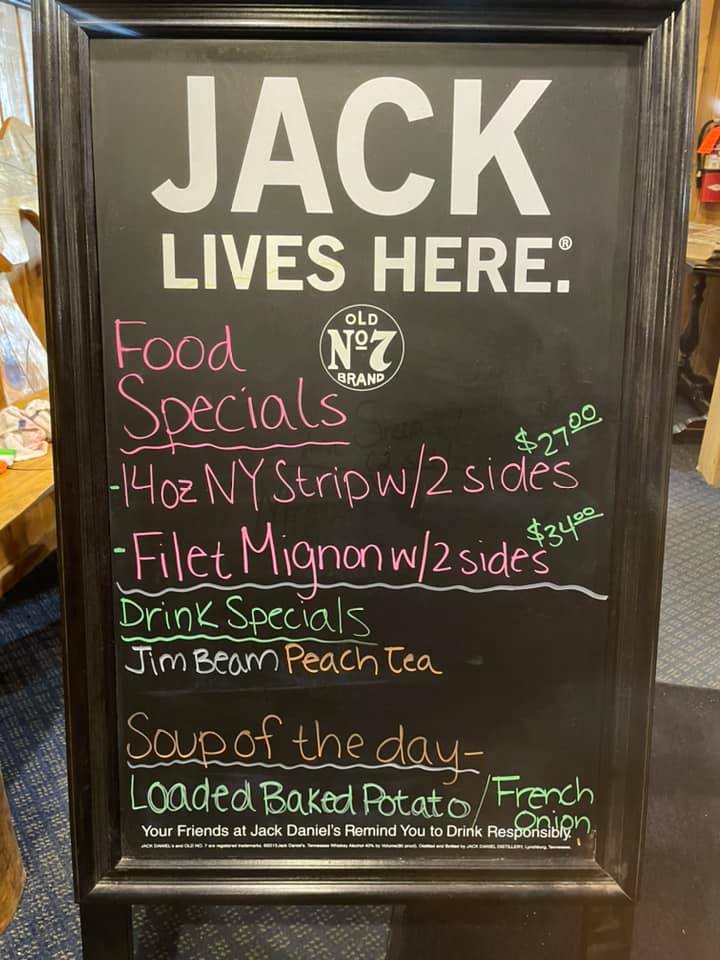 JACK
LIVES HERE.®
OLD
Nº7
BRAND
Food
Specials
$27.00
-14oz NY Strip w/2 sides
$34.00
-Filet Mignon w/2 sides
Drink Specials
Jim Beam Peach Tea
Soup of the day-
Loaded Baked Potato / French
Onion
Your Friends at Jack Daniel's Remind You to Drink Responsibly.